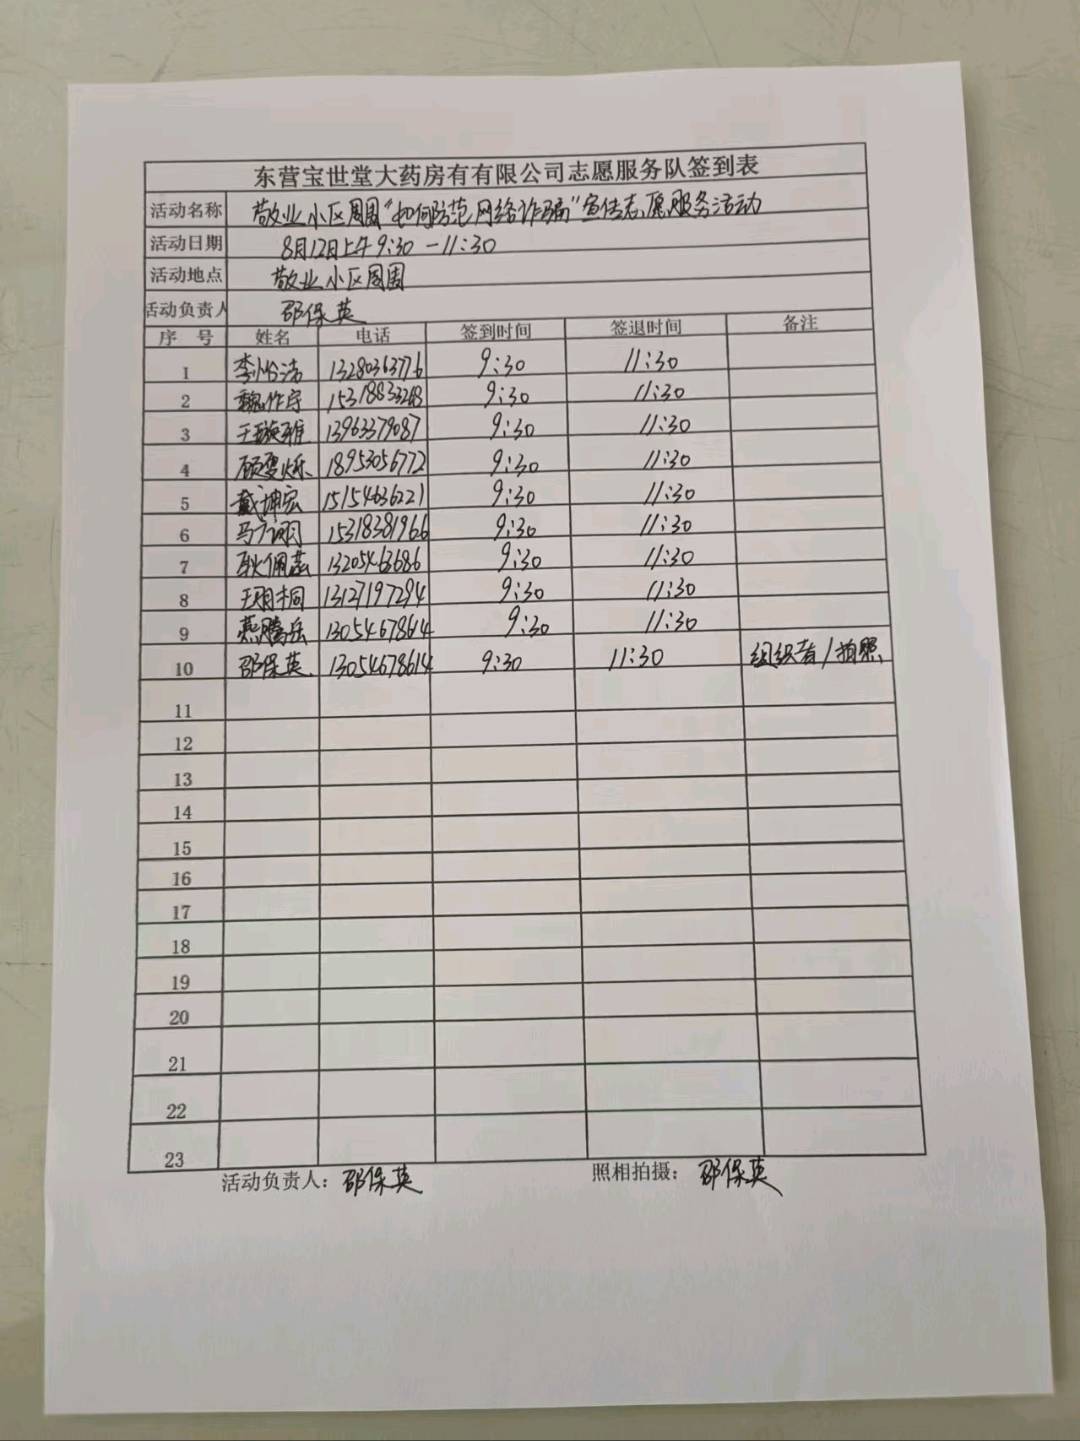 东营宝世堂大药房有有限公司志愿服务队签到表
活动名称 敬业小区周围“如何防范网络诈骗”宣传志愿服务活动
活动日期 8月12日上午9:30-11:30
活动地点 敬业小区周围
活动负责人 邵保英
序 号 姓名 电话 签到时间 签退时间 备注
1 李怡洁 13280363776 9:30 11:30
2 魏作宇 15318833248 9:30 11:30
3 王璇雅 13963379087 9:30 11:30
4 顾雯烁 18953056772 9:30 11:30
5 戴坤宏 15154636221 9:30 11:30
6 马广翊 15318381966 9:30 11:30
7 耿佩蕊 13205463686 9:30 11:30
8 王翊桐 13127197294 9:30 11:30
9 燕腾岳 13054678614 9:30 11:30
10 邵保英 13054678614 9:30 11:30 组织者/拍照
11
12
13
14
15
16
17
18
19
20
21
22
23
活动负责人：邵保英 照相拍摄：邵保英